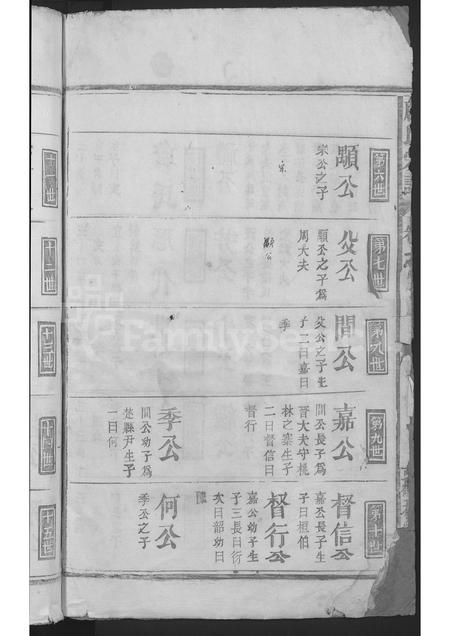 第六世
顯公
宗公之子
宗
第七世
父公
顯公之子爲
周大夫
顯公
第九世
間公
父公之子生
子二曰嘉曰
季
第九世
嘉公
間公長子爲
晉大夫守桃
林之塞生子
二曰督信曰
督行
季公
間公幼子爲
楚縣尹生子
一曰何
第十世
督信公
嘉公長子生
子曰桓伯
督行公
嘉公幼子生
子三長曰衍
次曰韶幼曰
何公
季公之子
十二世
十三世
十四世
十五世
FamilySearch